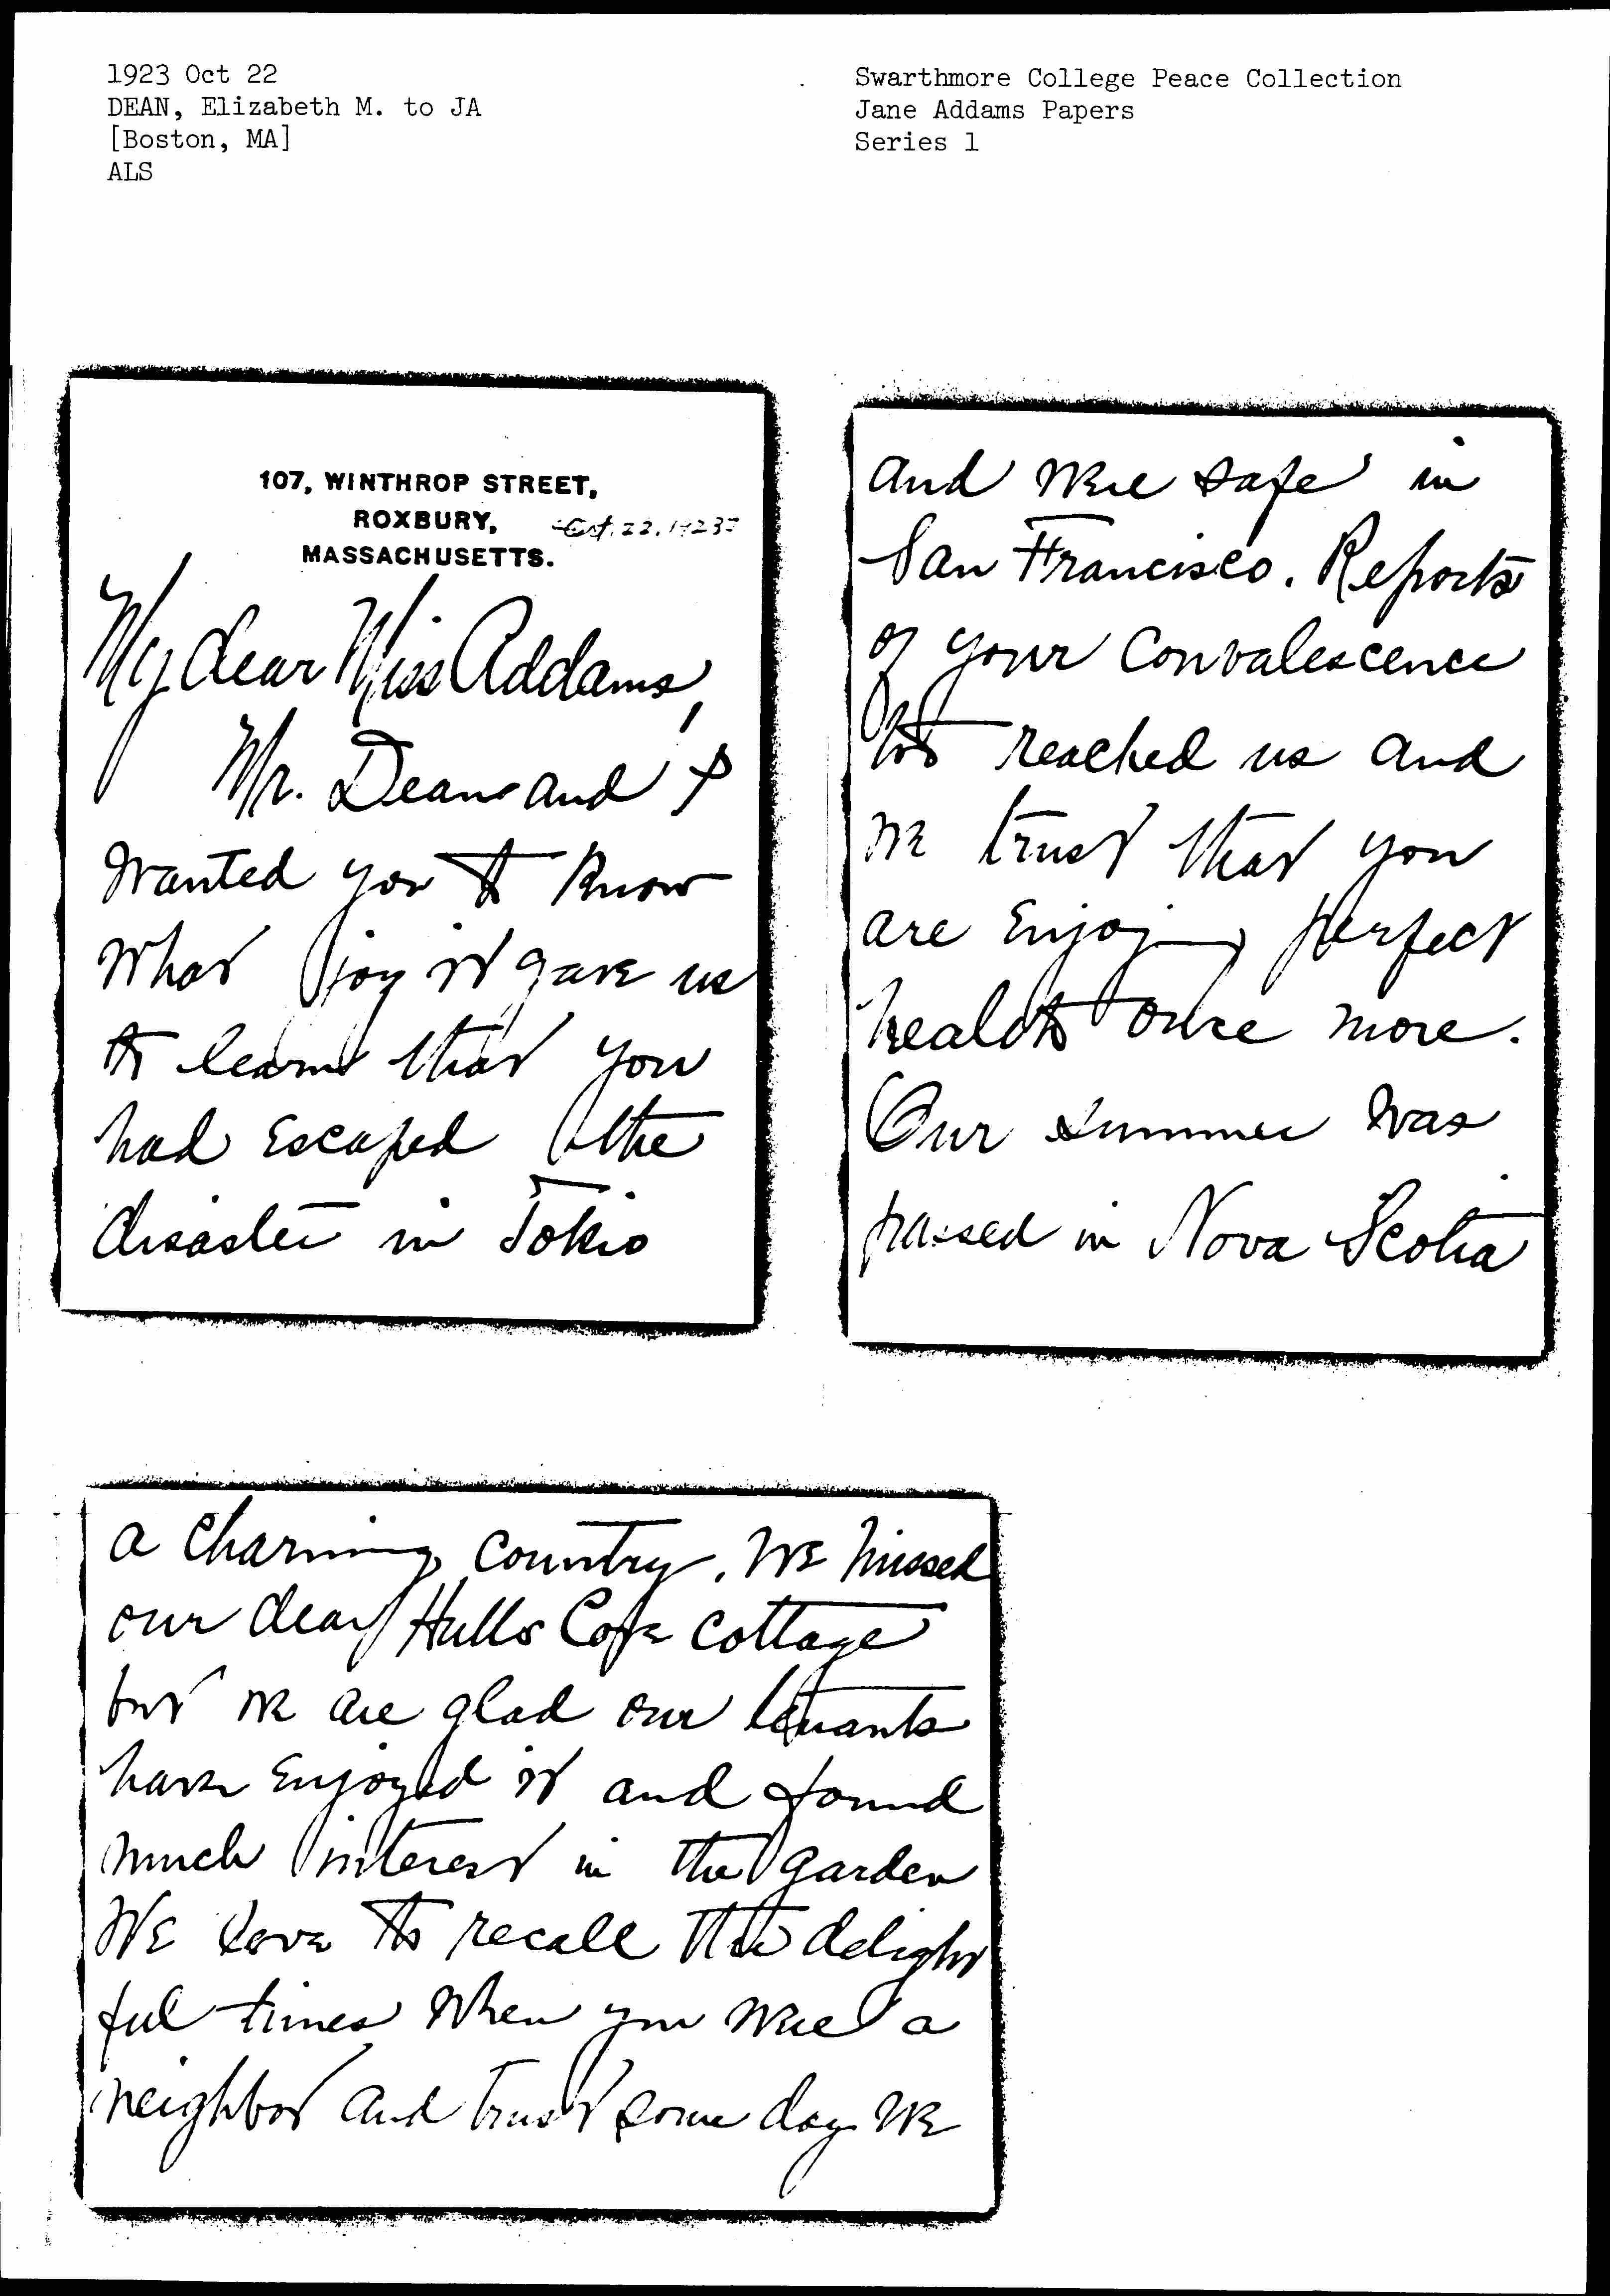 1923 Oct 22
DEAN, Elizabeth M. to JA
[Boston, MA]
ALS
Swarthmore College Peace Collection
Jane Addams Papers
Series 1
107, WINTHROP STREET,
ROXBURY,
MASSACHUSETTS.
Oct. 22, 1923?
My dear Miss Addams,
Mr. Dean and I
wanted you to know
what joy it gave us
to learn that you
had escaped the
disaster in Tokio
and were safe in
San Francisco. Reports
of your convalescence
too reached us and
we trust that you
are enjoying perfect
health once more.
Our summer was
passed in Nova Scotia
a charming country. We missed
our dear Hulls Cove cottage
but we are glad our tenants
have enjoyed it and found
much interest in the garden
We love to recall the delight
ful times when you were a
neighbor and trust some day we